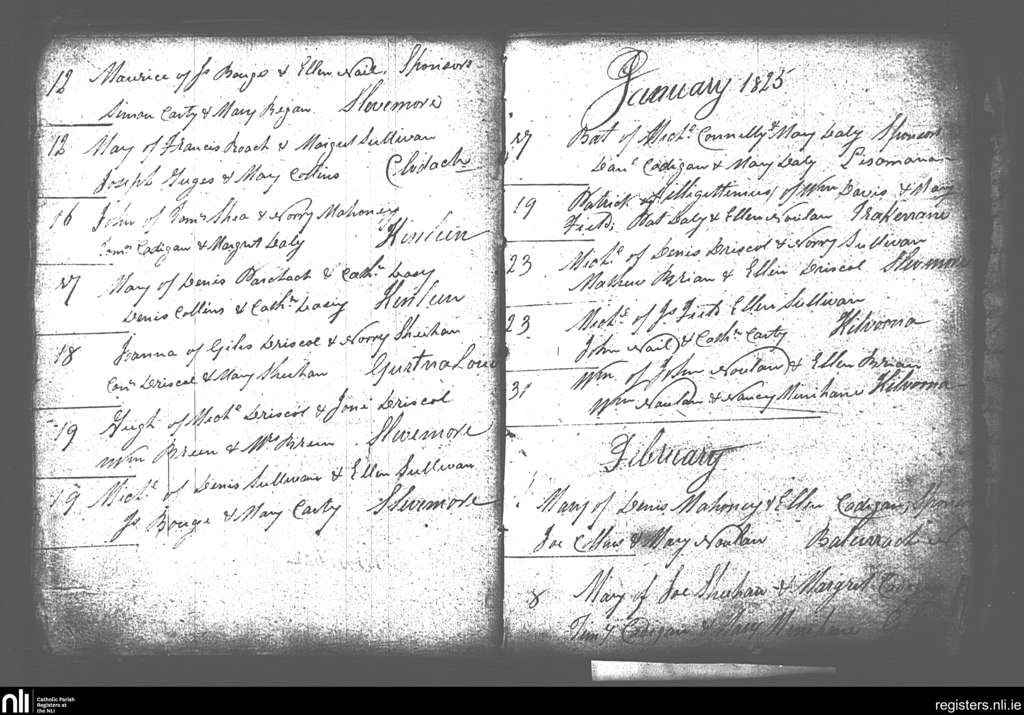 12 Maurice of Js Bouge & Ellen Nail. Sponsors
Simon Carty & Mary Regan Slevemore
12 Mary of Francis Roach & Margret Sullivan
Joseph Guges & Mary Collins Clodach
16 John of Tomˢ Shea & Norry Mahoney
Tomˢ Codigan & Margret Daly Kinleen
17 Mary of Denis & Cathⁿ Leary
Denis Collins & Cathⁿ Leary Kinleen
18 Joanna of Giles Driscol & Norry Sheehan
Conˢ Driscol & Mary Sheehan
19 Hugh of Michˡ Driscol & Joné Driscol
Wm Breen & Mʳˢ Breen Slevemore
19 Michˡ of Denis Sullivan & Ellen Sullivan
Js Bouge & Mary Carty Slevemore
January 1825
17 Bat of Michˡ Connelly & Mary Daly Sponsors
Danˡ Codigan & Mary Daly
19 Patrick (illigettimus) of Wm Davis & Mary
Field; Pat Daly & Ellen Noulan
23 Michˡ of Denis Driscol & Norry Sullivan
Mathew Brian & Ellen Driscol Slevmore
23 Michˡ of Js Field Ellen Sullivan
John Nail & Cathⁿ Carty Kilvorna
31 Wm of John Noulan & Ellen Brian
Wm Noulan & Nancy Minihane Kilvorna
February
1 Mary of Denis Mahoney & Ellen Codigan,
Joe Collins & Mary Noulan
8 Mary of Joe Sheehan & Margret
Timʸ Codigan & Mary Minihane
nli Catholic Parish
Registers at
the NLI
registers.nli.ie